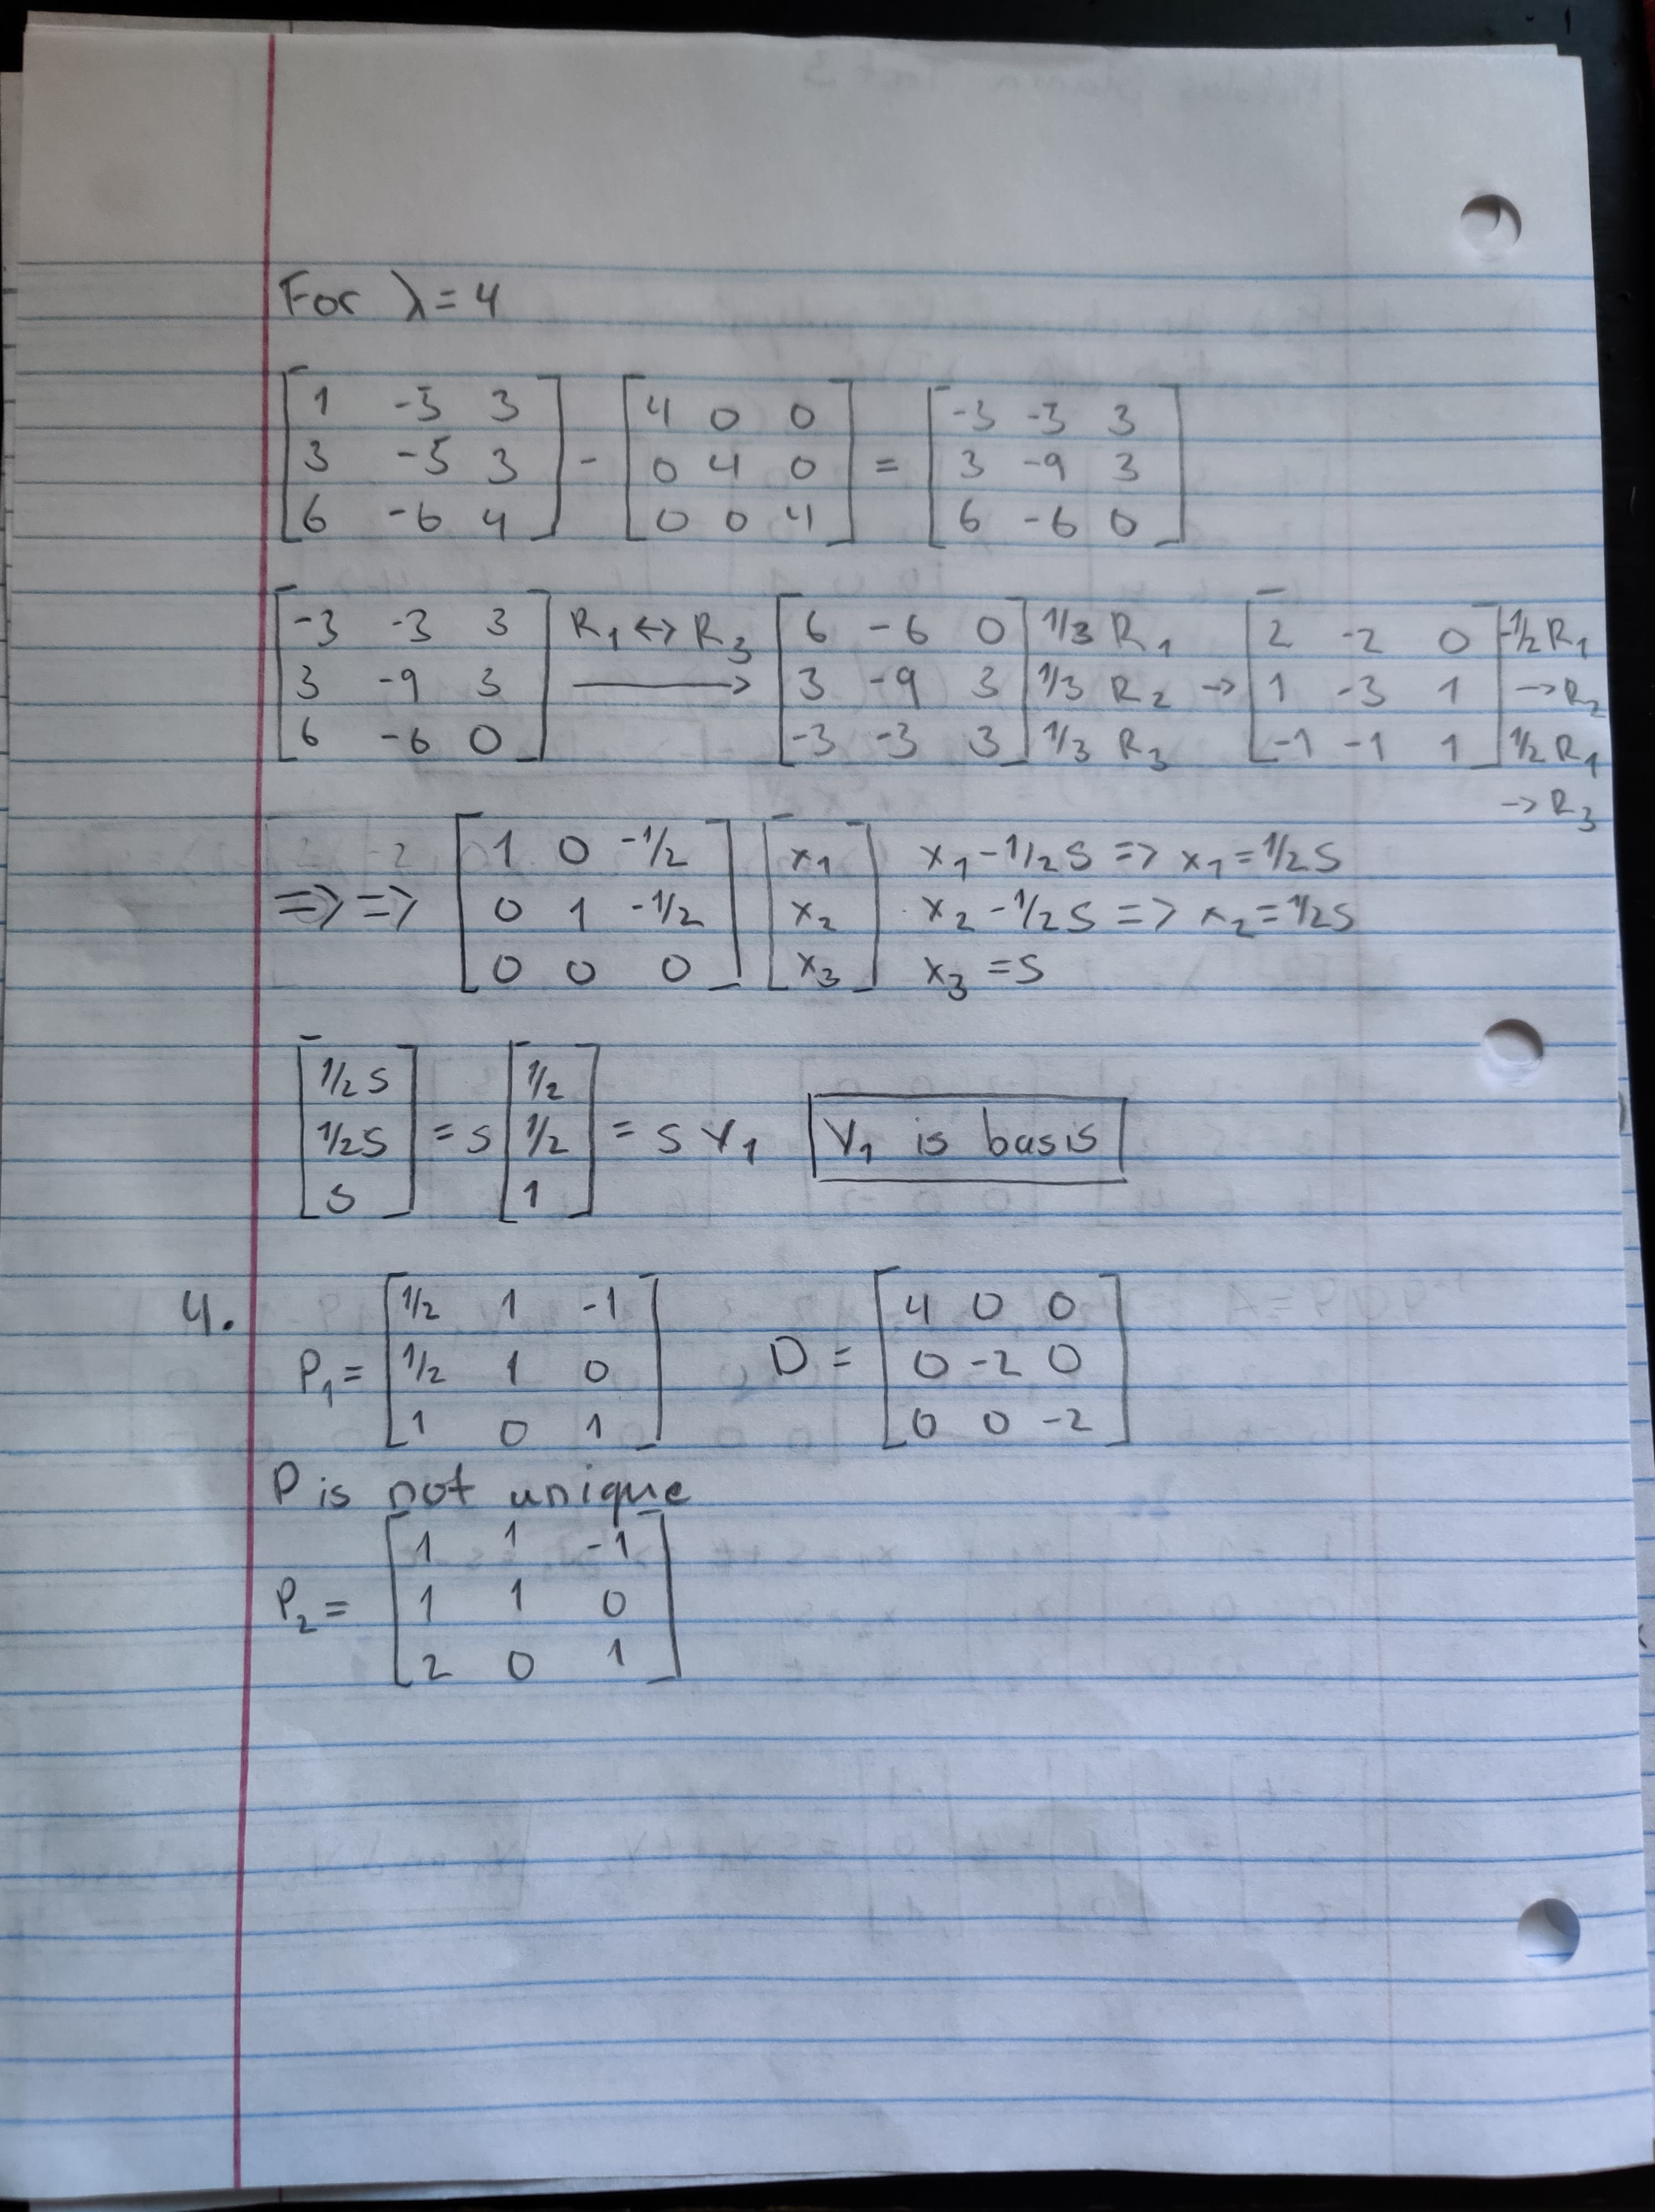 For λ=4
[1 -3 3; 3 -5 3; 6 -6 4] - [4 0 0; 0 4 0; 0 0 4] = [-3 -3 3; 3 -9 3; 6 -6 0]
[-3 -3 3; 3 -9 3; 6 -6 0] R₁ ↔ R₃ → [6 -6 0; 3 -9 3; -3 -3 3] 1/3 R₁ 1/3 R₂ 1/3 R₃ → [2 -2 0; 1 -3 1; -1 -1 1] -1/2 R₁ → R₂ 1/2 R₁ → R₃
=> => [1 0 -1/2; 0 1 -1/2; 0 0 0] [x₁; x₂; x₃] x₁ - 1/2 s => x₁ = 1/2 s
x₂ - 1/2 s => x₂ = 1/2 s
x₃ = s
[1/2 s; 1/2 s; s] = s [1/2; 1/2; 1] = s v₁ v₁ is basis
4. P₁ = [1/2 1 -1; 1/2 1 0; 1 0 1] D = [4 0 0; 0 -2 0; 0 0 -2]
P is not unique
P₂ = [1 1 -1; 1 1 0; 2 0 1]